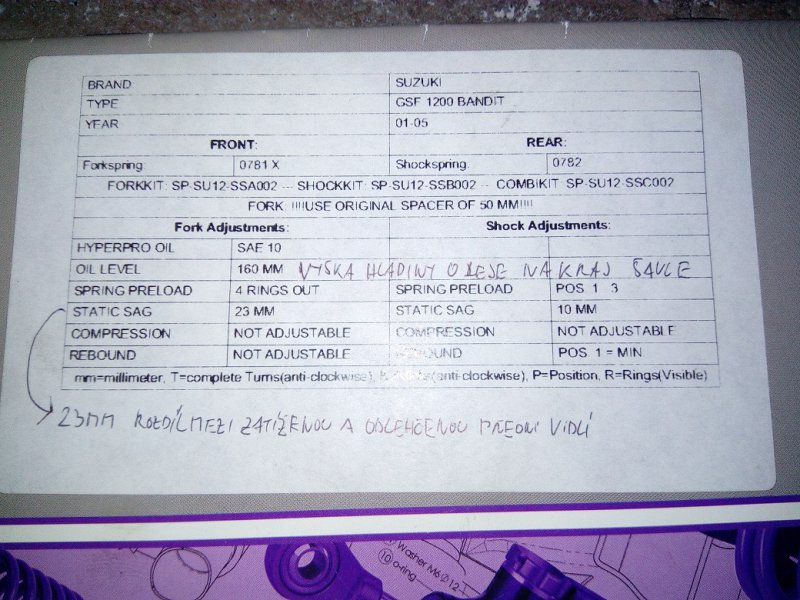 BRAND SUZUKI
TYPE GSF 1200 BANDIT
YEAR 01-05
FRONT: REAR:
Forkspring: 0781 X Shockspring: 0782
FORKKIT: SP-SU12-SSA002 --- SHOCKKIT: SP-SU12-SSB002 -- COMBIKIT: SP-SU12-SSC002
FORK: !!!!USE ORIGINAL SPACER OF 50 MM!!!!
Fork Adjustments: Shock Adjustments:
HYPERPRO OIL SAE 10
OIL LEVEL 160 MM VÝŠKA HLADINY OLEJE NA KRAJ ŠÁVLE
SPRING PRELOAD 4 RINGS OUT SPRING PRELOAD POS 1 3
STATIC SAG 23 MM STATIC SAG 10 MM
COMPRESSION NOT ADJUSTABLE COMPRESSION NOT ADJUSTABLE
REBOUND NOT ADJUSTABLE REBOUND POS 1 = MIN
mm=millimeter, T=complete Turns(anti-clockwise), (anti-clockwise), P=Position, R=Rings(Visible)
23MM ROZDÍL MEZI ZATÍŽENOU A ODLEHČENOU PŘEDNÍ VIDLÍ
Washer M6 Ø 12
10 o-ring